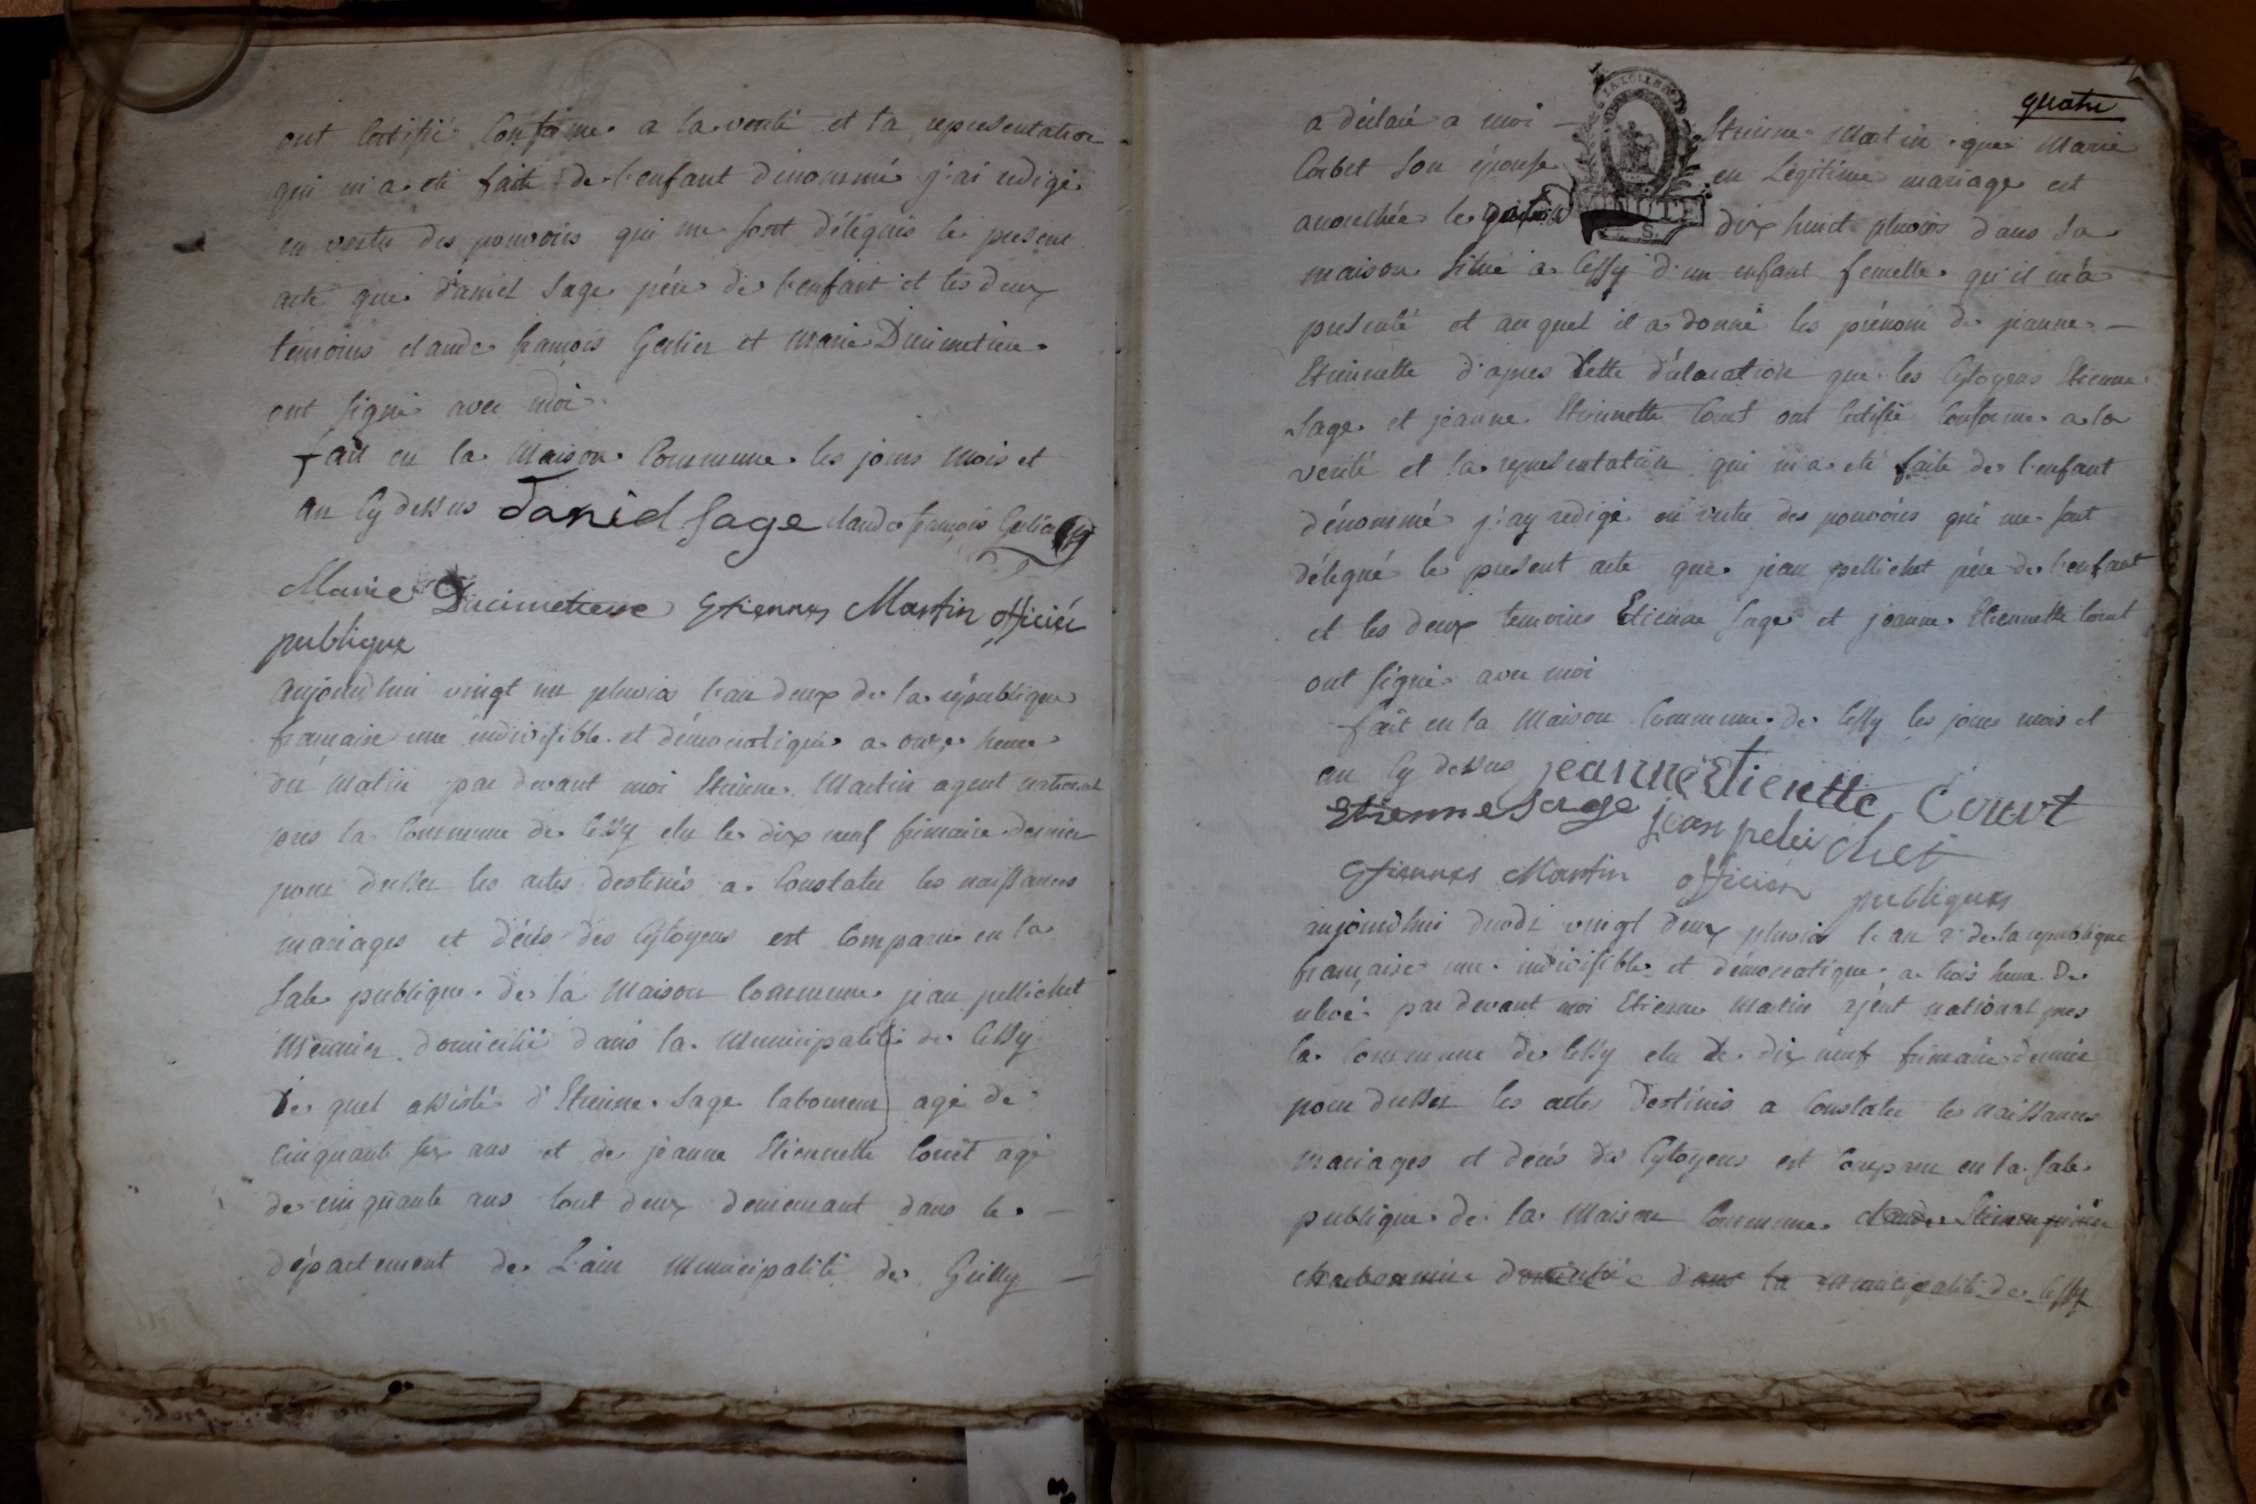 ont Certifié Conforme a la verité et la representation
qui m'a eté faite de l'enfant dénommé j'ai redigé
en vertu des pouvoirs qui me sont délégués le present
acte que daniel Sage pére de l'enfant et les deux
témoins claude françois Gerlier et marie Ducimetiere
ont signé avec moi
fait en la Maison Commune les jours mois et
an Cy dessus daniel Sage claude françois Gerlier
Marie Ducimetiere Etiennes Martin officiér
publique
aujourd'hui vingt un pluvios l'an deux de la république
française une indivisible et démocratique a onze heure
du matin par devant moi Etienne Martin agent national
pres la Commune de Cessy elu le dix neuf frimaire dernier
pour dresser les actes destinés a Constater les naissances
mariages et décés des Cytoyens est Comparu en la
Sale publique de la Maison Commune jean pellichet
Meunier domicilié dans la Municipalité de Cessy
le quel assisté d'Etienne Sage laboureur agé de
cinquante six ans et de jeanne Etiennette Court agé
de cinquante ans tout deux demeurant dans le
département de L'ain Municipalité de Grilly
quatre
a déclaré a moi Etienne Martin que Marie
Corbet son épouse en Légitime mariage est
accouchée le dix huit pluvios dans sa
maison située a Cessy d'un enfant femelle qu'il m'a
presenté et auquel il a donné les prénom de jeanne
Etiennette d'apres Cette déclaration que les Cytoyens Etienne
Sage et jeanne Etiennette Court ont Certifié Conforme a la
verité et la representation qui m'a eté faite de l'enfant
dénommé j'ay redigé en vertu des pouvoirs qui me sont
délegué le present acte que jean pellichet pére de l'enfant
et les deux temoins Etienne Sage et jeanne Etiennette Court
ont signé avec moi
fait en la Maison Commune de Cessy les jours mois et
an Cy dessus jeanne Etientte Court
Etienne Sage jean pelichet
Etiennes Martin officiér publiques
aujourd'hui duodi vingt deux pluvios l'an 2e de la republique
française une indivisible et démocratique a trois heure de
relevé par devant moi Etienne Martin ajent national pres
la Commune de Cessy elu le dix neuf frimaire dernier
pour dresser les actes destinés a Constater les naissances
Mariages et décés des Cytoyens est Comparu en la Sale
publique de la Maison Commune claude Etienne
charbonnier domicilié dans la municipalité de Cessy